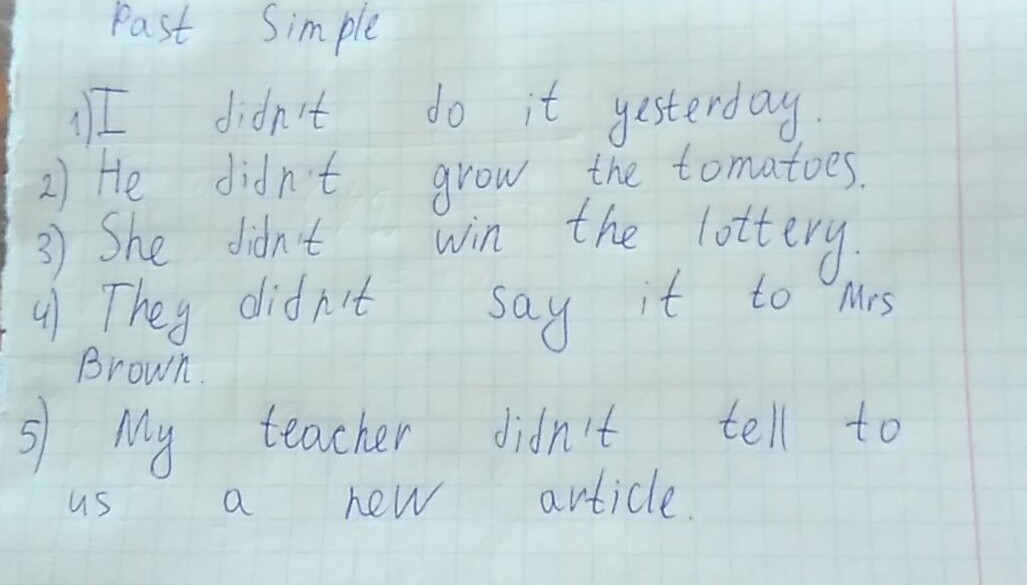 Past Simple
1) I didn't do it yesterday.
2) He didn't grow the tomatoes.
3) She didn't win the lottery.
4) They didn't say it to Mrs
Brown.
5) My teacher didn't tell to
us a new article.